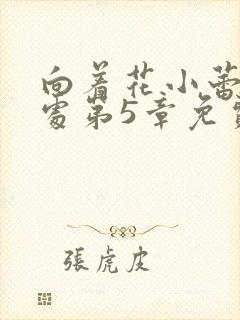 向着花小蕾
处第5章免
張虎皮